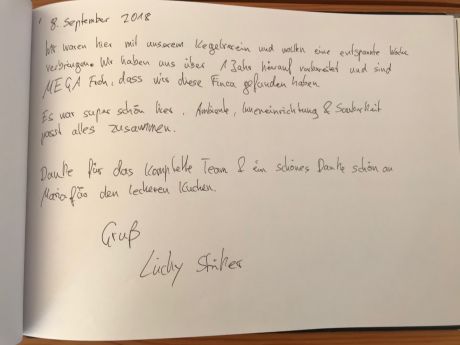 8. September 2018
Wir waren hier mit unserem Kegelverein und wollten eine entspannte Woche
verbringen. Wir haben uns über 1 Jahr hierauf vorbereitet und sind
MEGA Froh, dass wir diese Finca gefunden haben.
Es war super schön hier. Ambiente, Inneneinrichtung & Sauberkeit
passt alles zusammen.
Danke für das komplette Team & ein schönes Danke schön an
Maria für den leckeren Kuchen.
Gruß
Lucky Striker